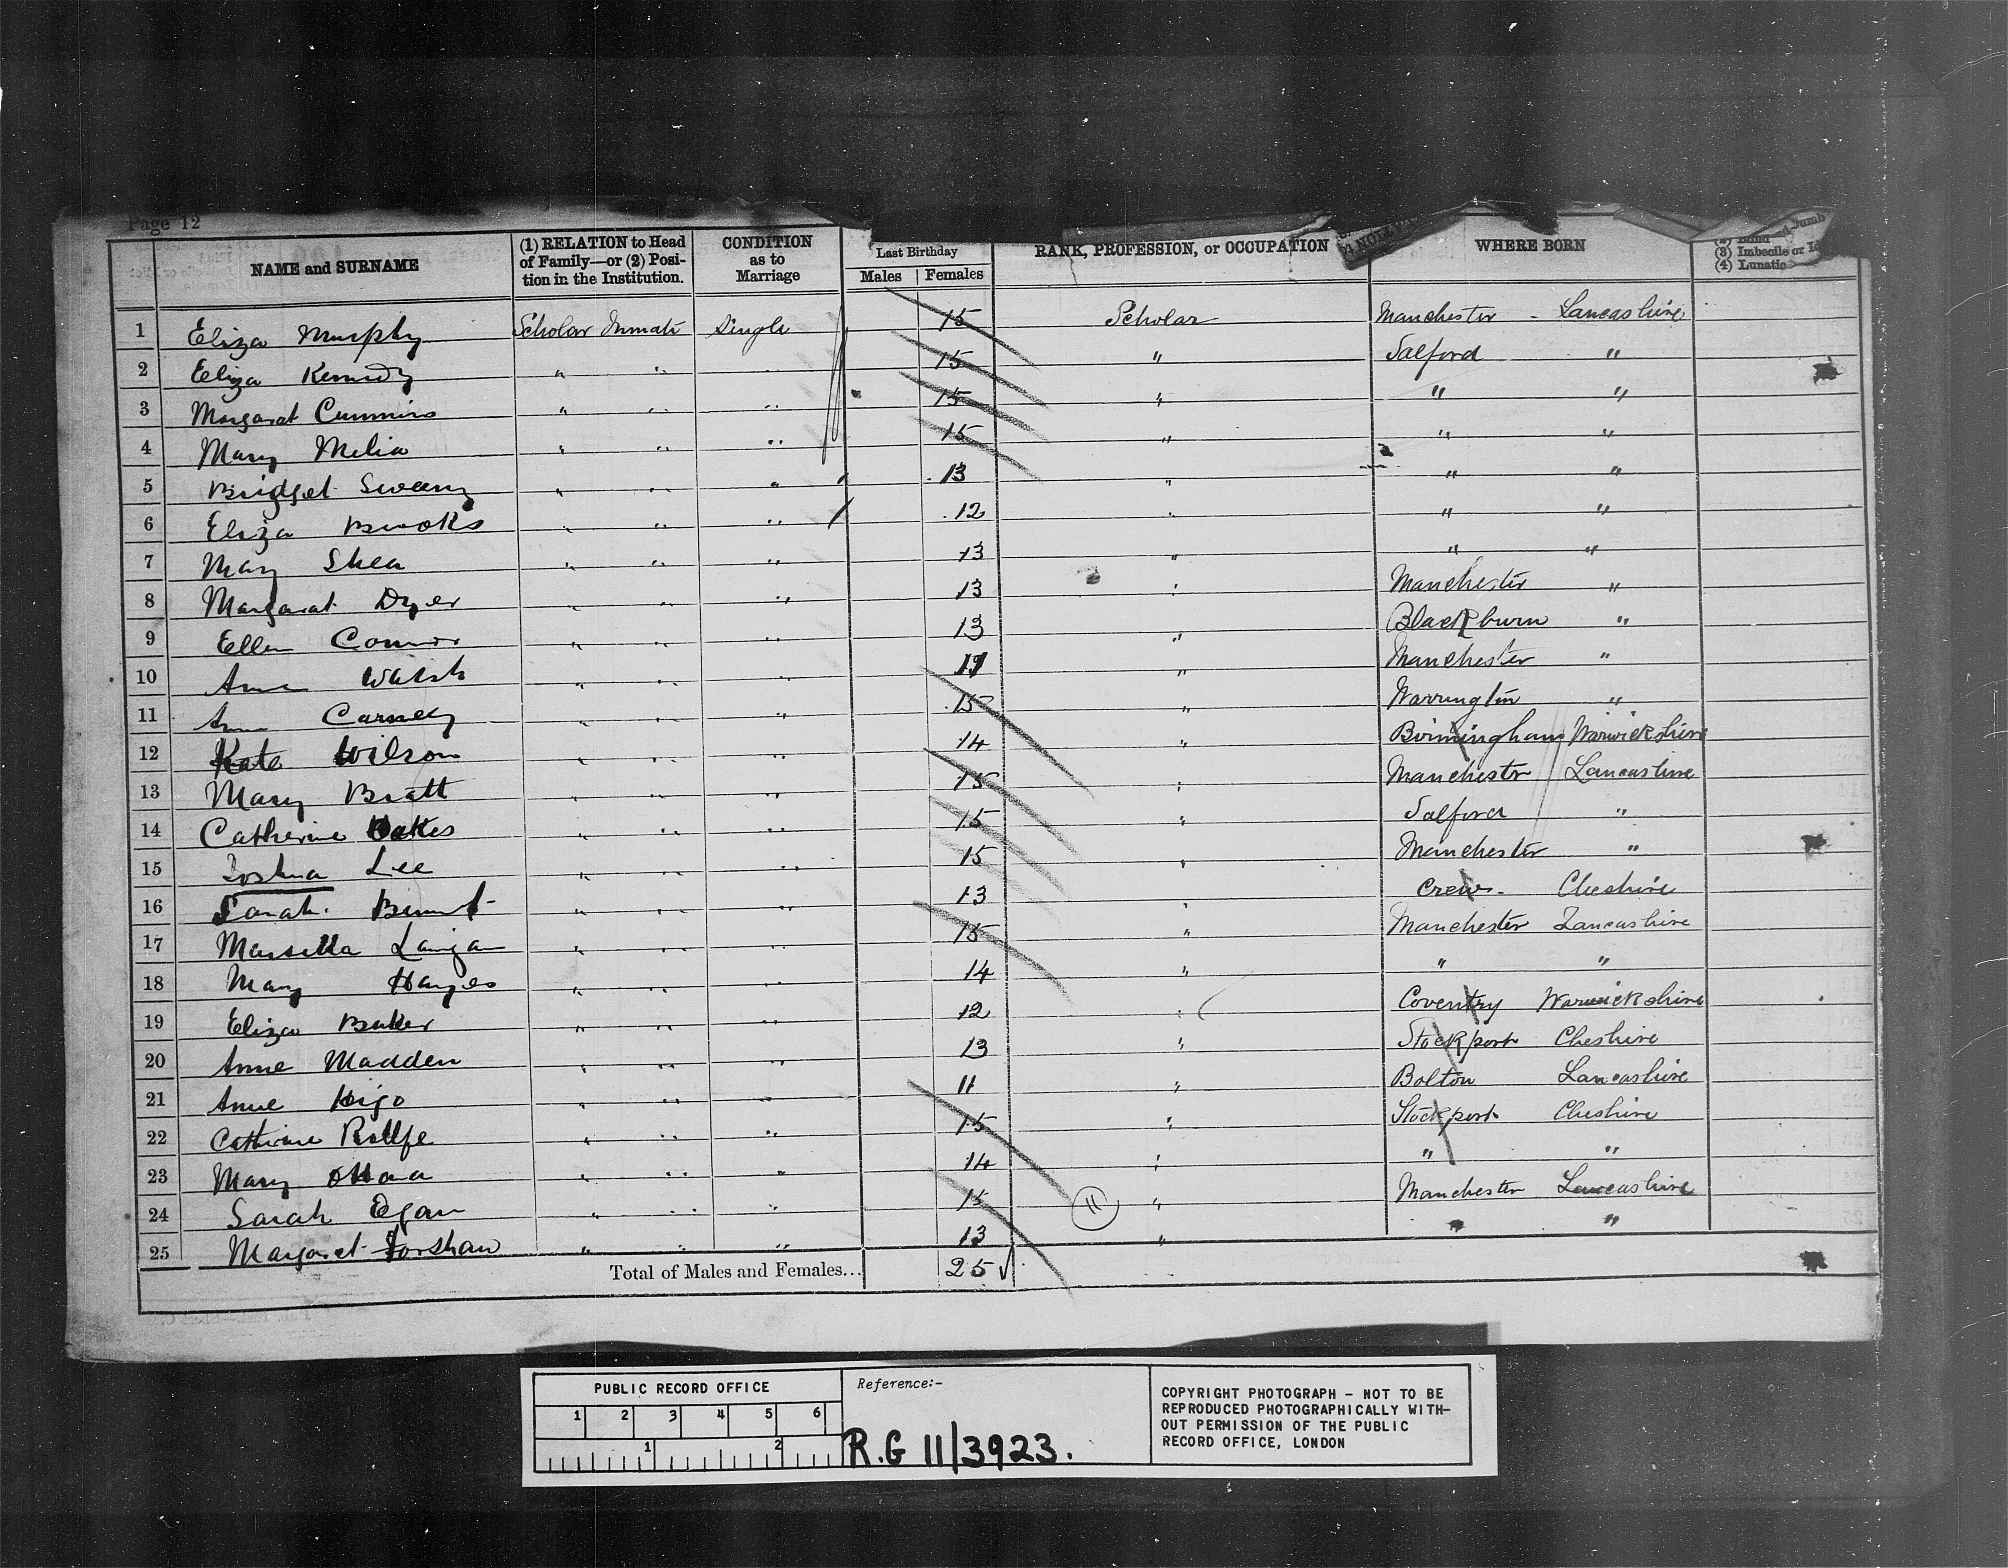 Page 12
NAME and SURNAME (1) RELATION to Head of Family—or (2) Position in the Institution. CONDITION as to Marriage Last Birthday Males Females RANK, PROFESSION, or OCCUPATION WHERE BORN (3) Imbecile or (4) Lunatic
1 Eliza Murphy Scholar Inmate Single 15 Scholar Manchester - Lancashire
2 Eliza Kennedy " " " 15 " Salford "
3 Margaret Cummins " " " 15 " " "
4 Mary Melia " " " 15 " " "
5 Bridget Sweeny " " " 13 " " "
6 Eliza Brooks " " " 12 " " "
7 Mary Shea " " " 13 " " "
8 Margaret Dyer " " " 13 " Manchester "
9 Ellen Connor " " " 13 " Blackburn "
10 Anne Walsh " " " " Manchester "
11 Anne Carney " " " 15 " Warrington "
12 Kate Wilson " " " 14 " Birmingham Warwickshire
13 Mary Bratt " " " 15 " Manchester Lancashire
14 Catherine Oakes " " " 15 " Salford "
15 Joshua Lee " " " 15 " Manchester "
16 Sarah " " " 13 " Crewe Cheshire
17 Marsella " " " 15 " Manchester Lancashire
18 Mary Hayes " " " 14 " " "
19 Eliza Baker " " " 12 " Coventry Warwickshire
20 Anne Madden " " " 13 " Stockport Cheshire
21 Anne " " " 11 " Bolton Lancashire
22 Catherine Rolfe " " " 15 " Stockport Cheshire
23 Mary " " " 14 " " "
24 Sarah Egan " " " 15 11 " Manchester Lancashire
25 Margaret Forshaw " " " 13 " " "
Total of Males and Females... 25
PUBLIC RECORD OFFICE
1 2 3 4 5 6
1 2
Reference:-
R.G 11/3923.
COPYRIGHT PHOTOGRAPH - NOT TO BE
REPRODUCED PHOTOGRAPHICALLY WITH-
OUT PERMISSION OF THE PUBLIC
RECORD OFFICE, LONDON